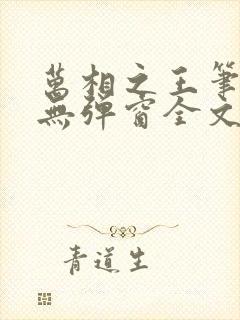 萬相之王筆
無彈窗全文
青道生